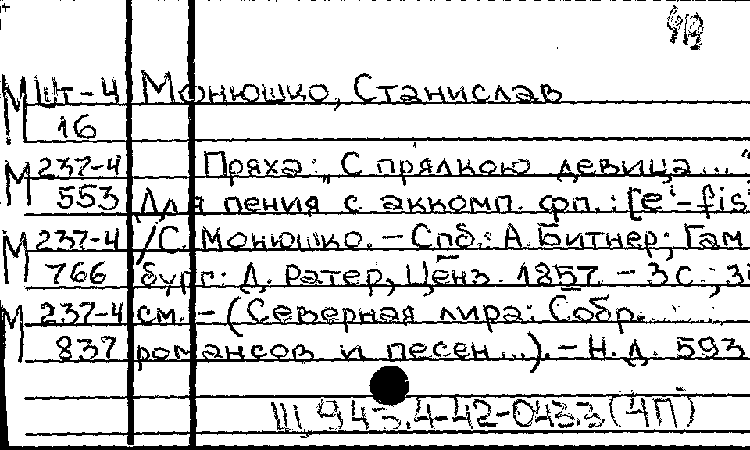 ЧВ
М Шт-4 Монюшко, Станислав
16
М 237-4 Пряха: „С прялкою девица..."
553 Для пения с аккомп. фп.: [e¹-fis
М 237-4 /С. Монюшко. - Спб.: А. Битнер; Гам
766 бург: Д. Ратер, Ценз. 1857. - 3 с.;
М 237-4 см. - (Северная лира: Собр.
837 романсов и песен...). - Н. д. 593
Ш 943.4-42-043.3 (4П)